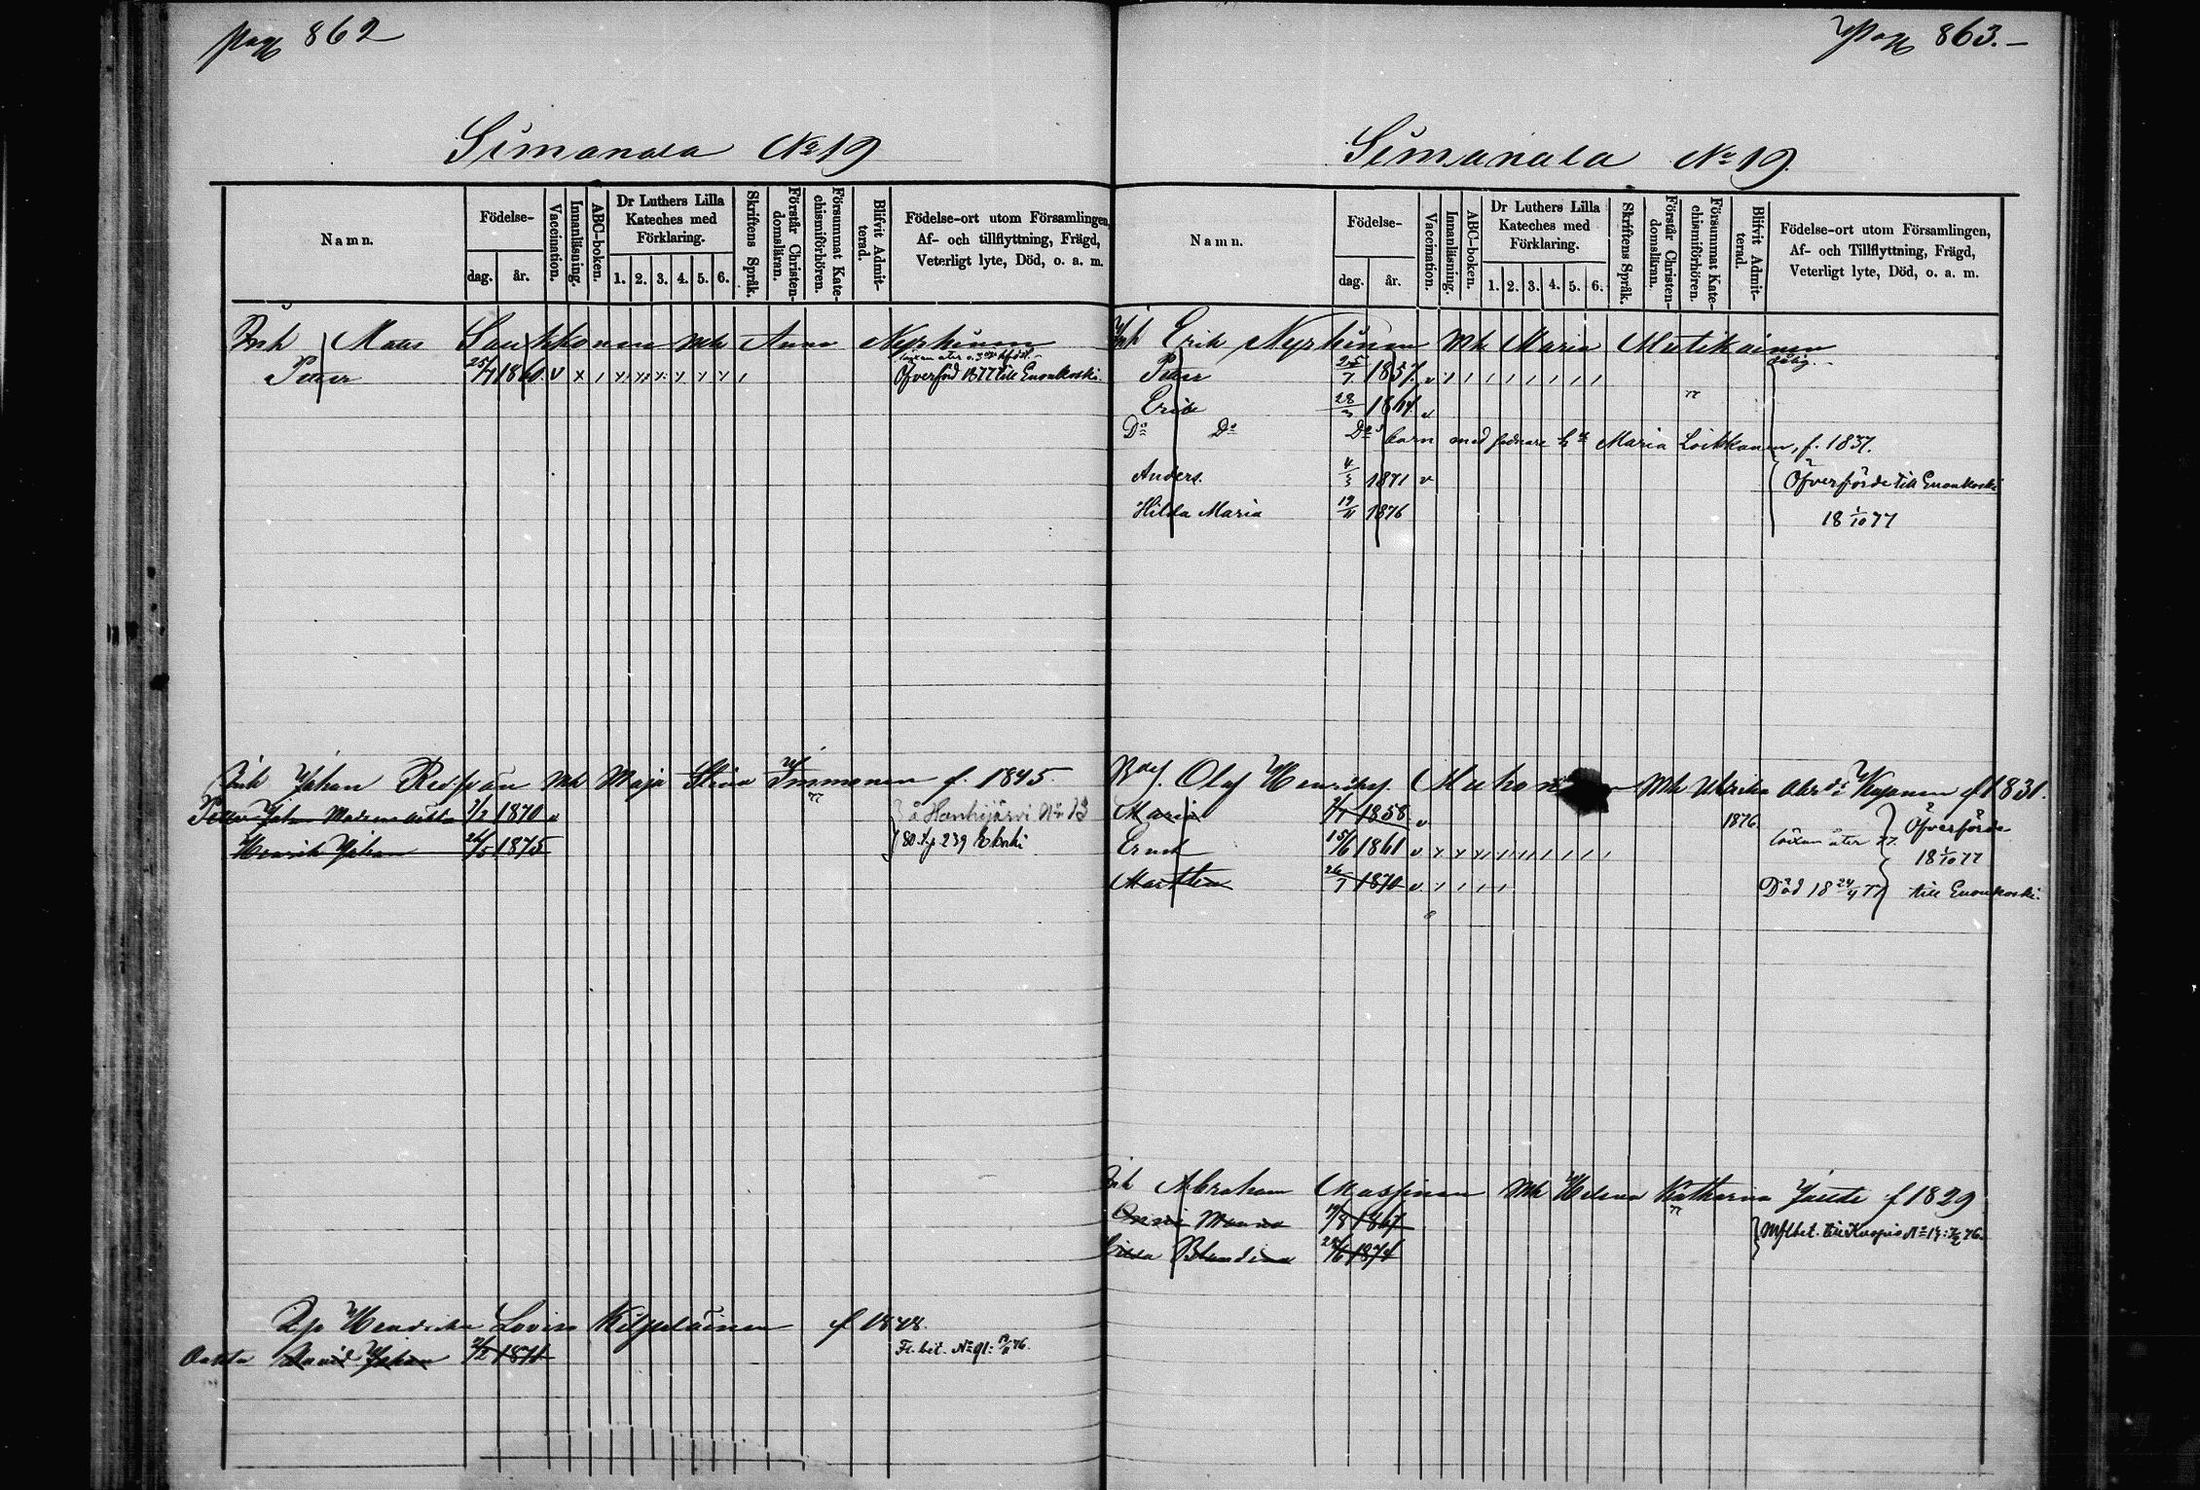 pag 862
Simanala No 19
Namn.
Födelse-
dag. år.
Vaccination.
Innanläsning.
ABC-boken.
Dr Luthers Lilla
Kateches med
Förklaring.
1. 2. 3. 4. 5. 6.
Skriftens Språk.
Förstår Christen-
domsläran.
Försummat Kate-
chismiförhören.
Blifvit Admit-
terad.
Födelse-ort utom Församlingen,
Af- och tillflyttning, Frägd,
Veterligt lyte, Död, o. a. m.
Inh Mats Saukkonen Mh Anna Nyrhinen
Petter 25/7 1860 v Öfverförd 1877 till Enonkoski.
Inh Johan Reijonen Mh Maja Stina Immonen f. 1845.
Petter Johan 2/2 1870 v å Hanhijärvi No 13
Henrik Johan 26/5 1875 80 p. 239 E koski
Henrika Lovisa Kilpeläinen f 1848.
David Johan 2/2 1871 Fl. bet. No 91:
Pag 863.
Simanala No 19.
Namn.
Födelse-
dag. år.
Vaccination.
Innanläsning.
ABC-boken.
Dr Luthers Lilla
Kateches med
Förklaring.
1. 2. 3. 4. 5. 6.
Skriftens Språk.
Förstår Christen-
domsläran.
Försummat Kate-
chismiförhören.
Blifvit Admit-
terad.
Födelse-ort utom Församlingen,
Af- och Tillflyttning, Frägd,
Veterligt lyte, Död, o. a. m.
Inh Erik Nyrhinen Mh Maria Mutikainen
Petter 25/7 1857. v
Erik 28/3 1864 v
Do Do Do barn med sednare h. Maria Loikkanen, f. 1837.
Anders. 4/3 1871 v Öfverförde till Enonkoski
Hilda Maria 19/11 1876 18 1/10 77
Olof Henriks. Muhonen Mh Ulrika Kejonen f 1831.
Maria 1858 v 1876 Öfverförde
Ernst 15/6 1861 v 18 1/10 77
Martin 26/7 1870 v Död 18 24/4 77 till Enonkoski.
Inh Abraham Mh Helena Katharina f 1829
7/8 1867 Mflbet. till Kuopio
Blandina 1874